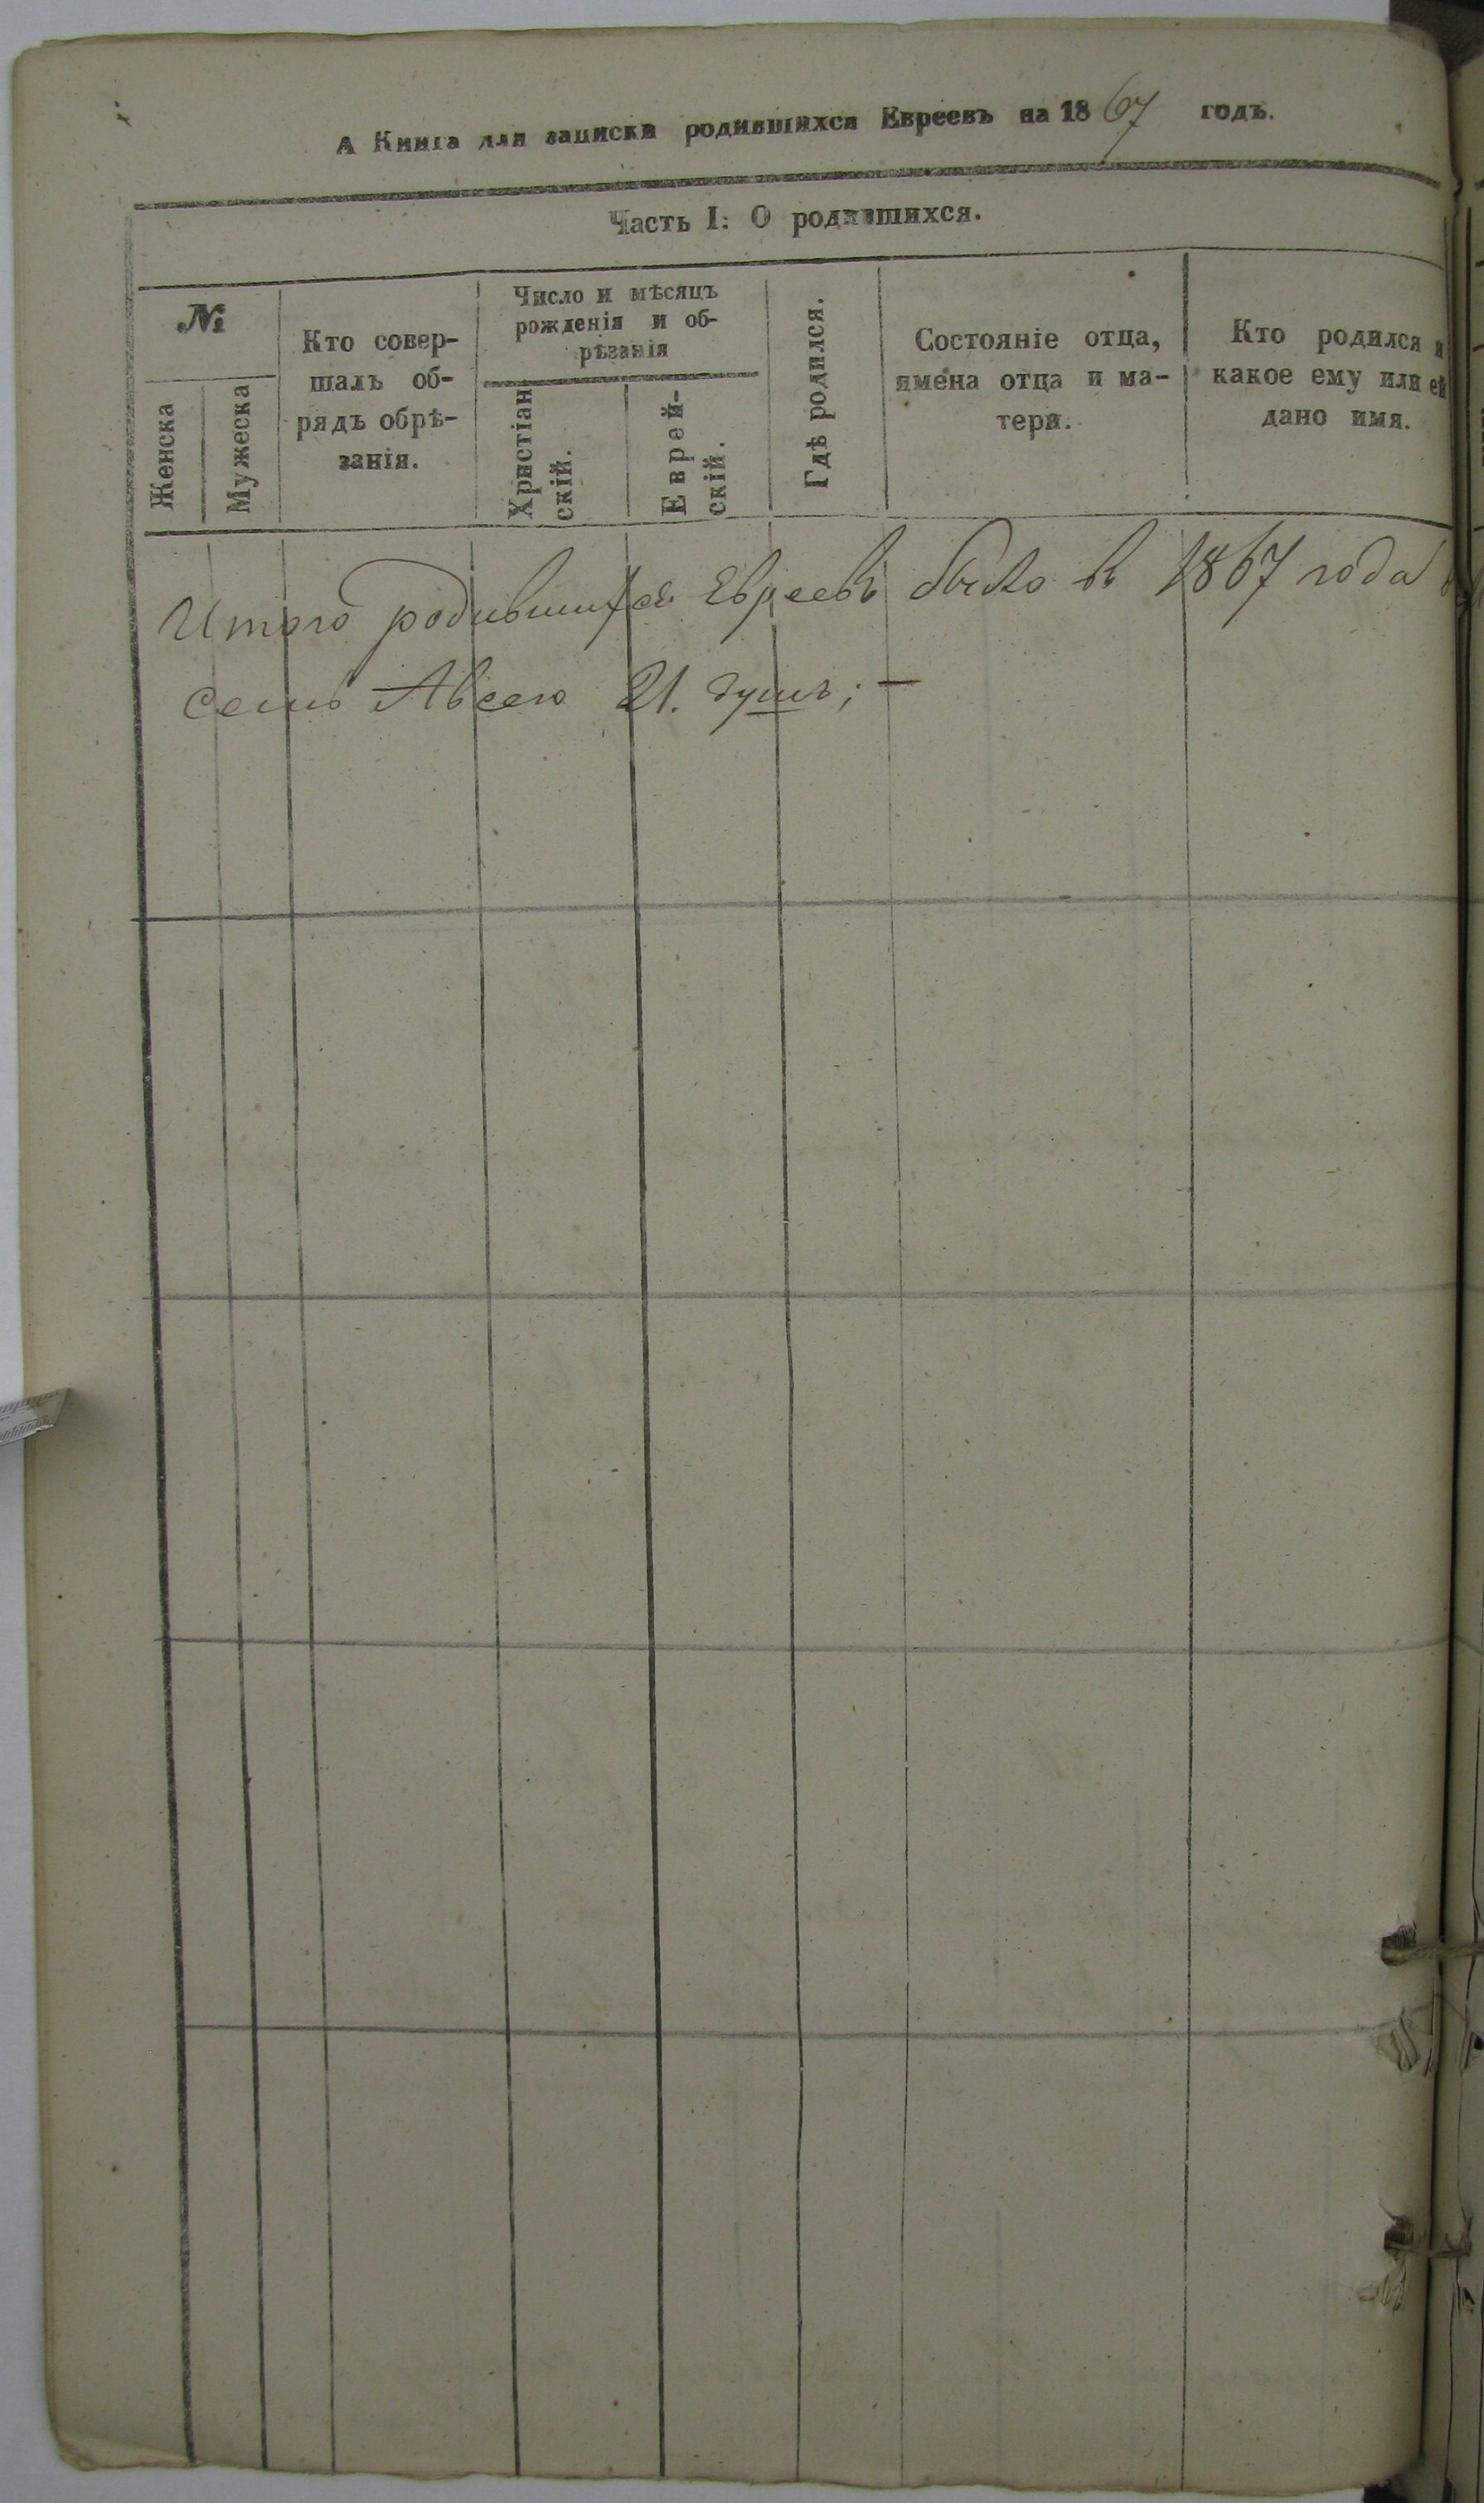 А Книга для записки родившихся Евреевъ на 1867 годъ.
Часть I: О родившихся.
№
Женска
Мужеска
Кто совер-
шалъ об-
рядъ обрѣ-
занія.
Число и мѣсяцъ
рожденія и об-
рѣзанія
Христіан
скій.
Еврей-
скій.
Гдѣ родился.
Состояніе отца,
имена отца и ма-
тери.
Кто родился и
какое ему или ей
дано имя.
Итого родившихся Евреевъ было въ 1867 года
семъ Авсего 21. душъ; —